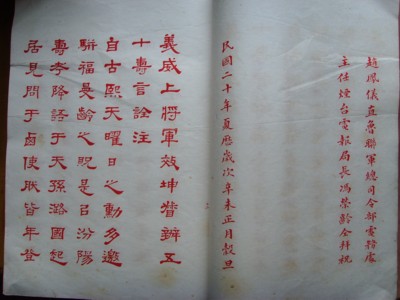 趙鳳儀直魯聯軍總司令部電務處
主任煙台電報局長馮榮齡仝拜祝
民國二十年夏歷歲次辛未正月穀旦
義威上將軍效坤督辦五
十壽言詮注
自古熙天曜日之勳多邀
駢福曼齡之貺是㠯汾陽
壽考降語于天孫潞國起
居見問于鹵使皆年登